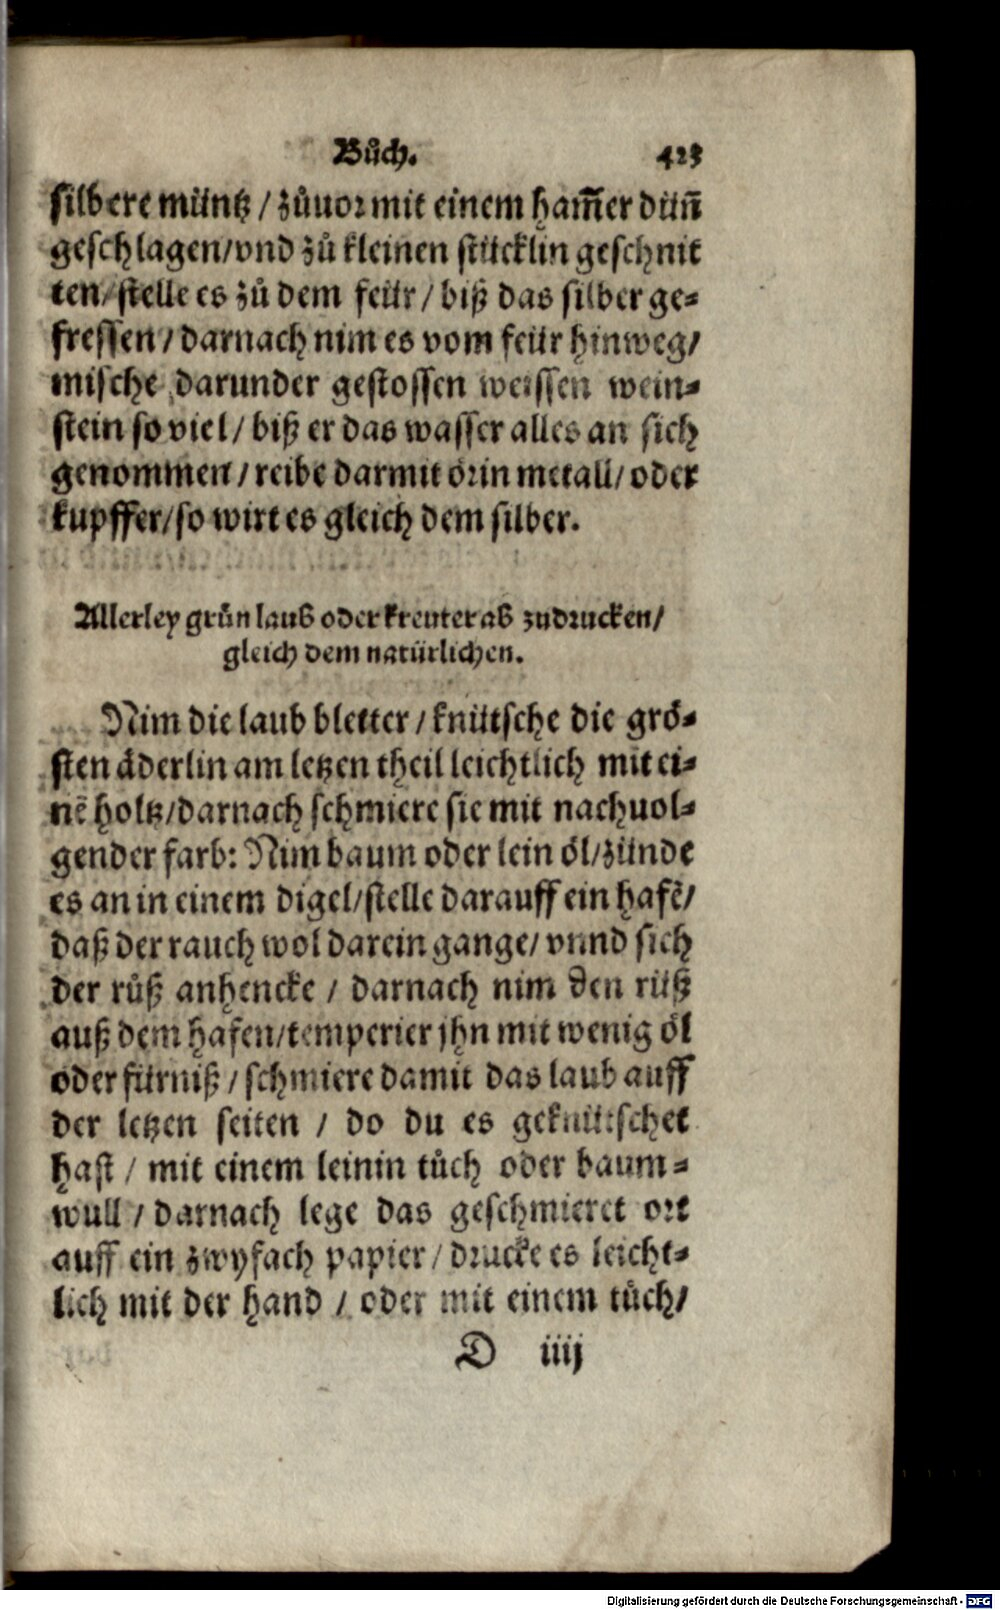 Bůch. 423
silbere müntz / zůuor mit einem ham̄er dün̄
geschlagen/vnd zů kleinen stücklin geschnit
ten/stelle es zů dem feür / biß das silber ge-
fressen / darnach nim es vom feür hinweg/
mische darunder gestossen weissen wein-
stein so viel / biß er das wasser alles an sich
genommen / reibe darmit örin metall/ oder
kupffer/so wirt es gleich dem silber.
Allerley grůn laub oder kreuter ab zudrucken/
gleich dem natürlichen.
Nim die laub bletter / knütsche die grö-
sten äderlin am letzen theil leichtlich mit ei-
nē holtz/darnach schmiere sie mit nachuol-
gender farb: Nim baum oder lein öl/zünde
es an in einem digel/stelle darauff ein hafē/
daß der rauch wol darein gange/ vnnd sich
der růß anhencke / darnach nim den rüß
auß dem hafen/temperier jhn mit wenig öl
oder fürniß / schmiere damit das laub auff
der letzen seiten / do du es geknütschet
hast / mit einem leinin tůch oder baum-
wull / darnach lege das geschmieret ort
auff ein zwyfach papier / drucke es leicht-
lich mit der hand / oder mit einem tůch/
D iiij
Digitalisierung gefördert durch die Deutsche Forschungsgemeinschaft - DFG